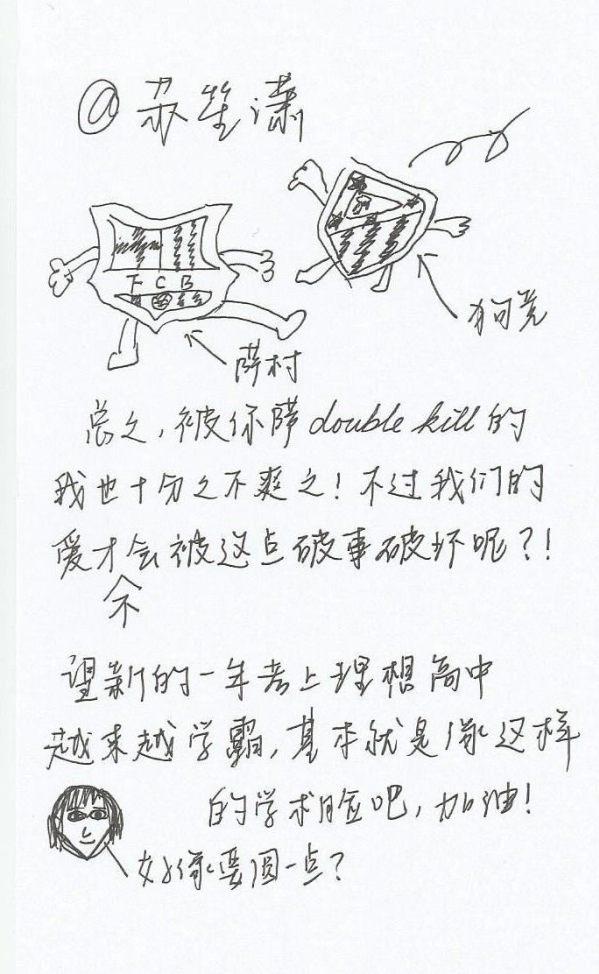 @苏笙潇
FCB
狗竞
萨村
总之,被你萨double kill的
我也十分之不爽之!不过我们的
爱才会被这点破事破坏呢?!
不
望新的一年考上理想高中
越来越学霸,基本就是像这样
的学术脸吧,加油!
好像要圆一点?